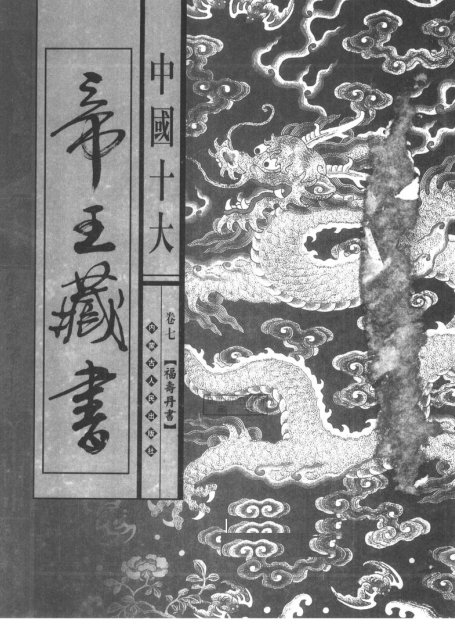 中國十大
帝王藏書
卷七【福壽丹書】
內蒙古人民出版社